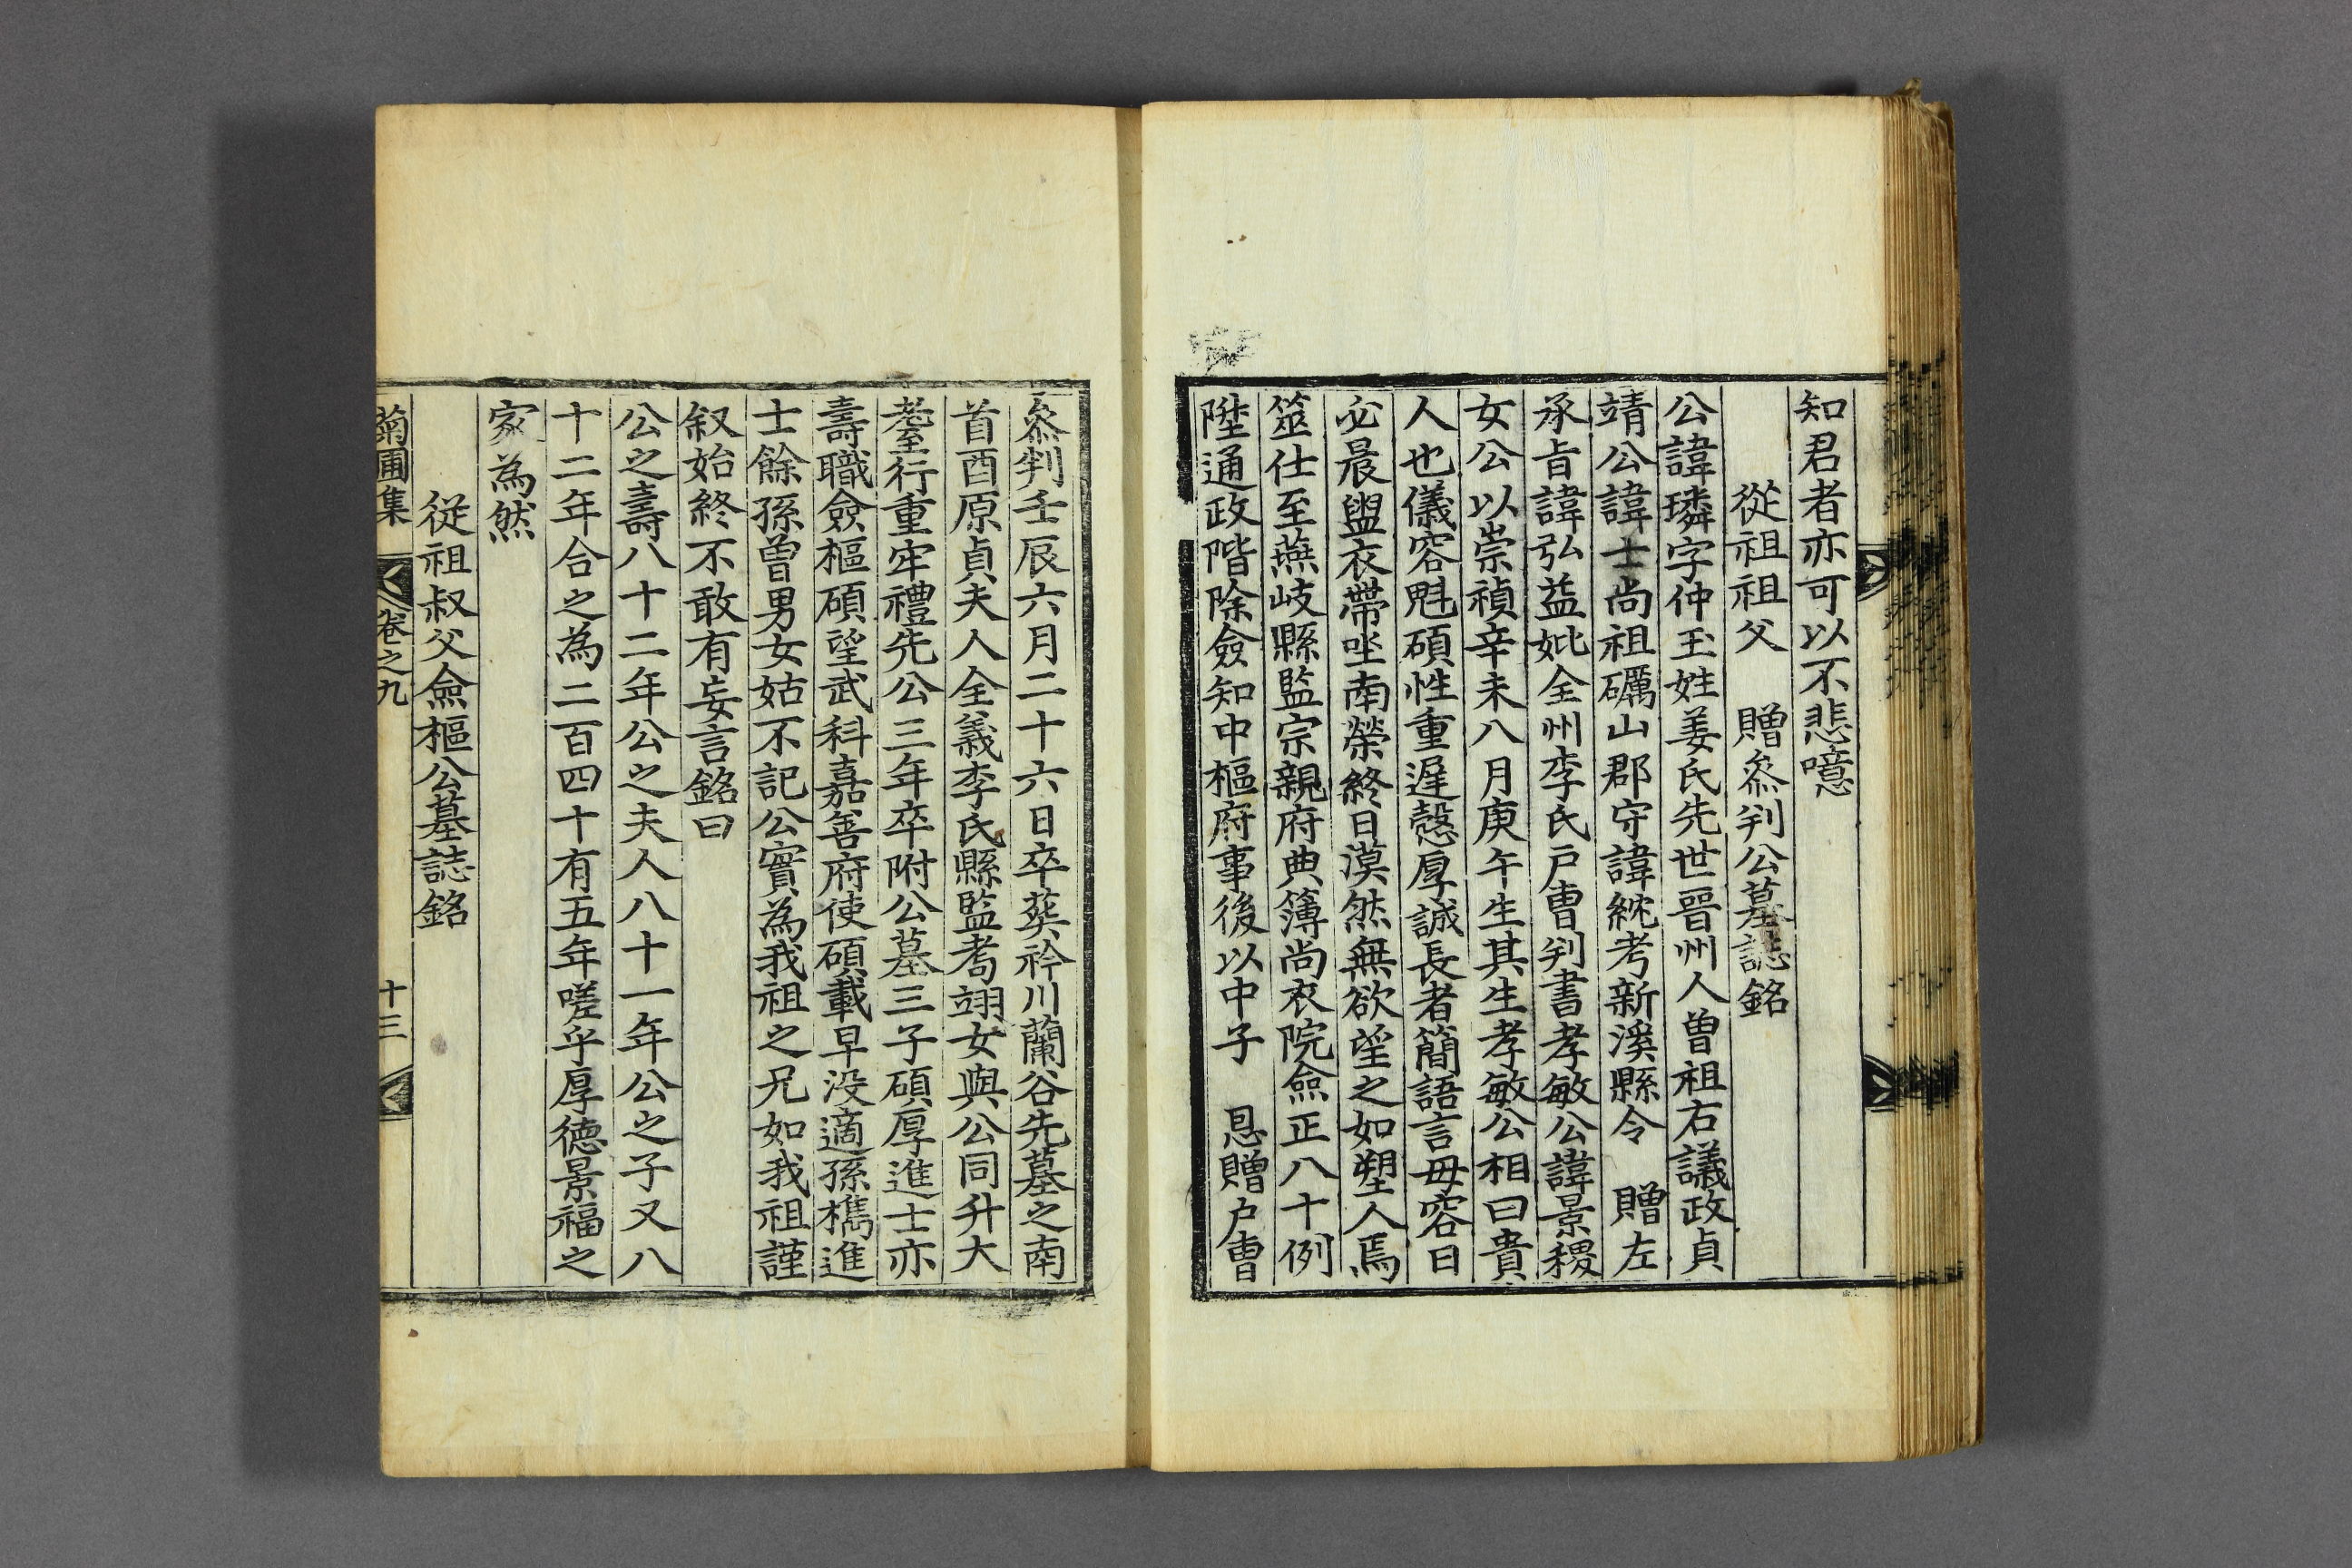 知君者亦可以不悲噫
從祖祖父　贈叅判公墓誌銘
公諱璘字仲玉姓姜氏先世晉州人曾祖右議政貞
靖公諱士尚祖礪山郡守諱紞考新溪縣令　贈左
承旨諱弘益妣全州李氏戶曹判書孝敏公諱景稷
女公以崇禎辛未八月庚午生其生孝敏公相曰貴
人也儀容魁碩性重遲慤厚誠長者簡語言毋容日
必晨盥衣帶坐南榮終日漠然無欲望之如塑人焉
筮仕至燕歧縣監宗親府典簿尚衣院僉正八十例
陞通政階除僉知中樞府事後以中子　恩贈户曹
叅判壬辰六月二十六日卒葬衿川蘭谷先墓之南
首酉原貞夫人全義李氏縣監耉翊女與公同升大
耋行重牢禮先公三年卒附公墓三子碩厚進士亦
壽職僉樞碩望武科嘉善府使碩載早没適孫檇進
士餘孫曾男女姑不記公實為我祖之兄如我祖謹
叙始終不敢有妄言銘曰
公之壽八十二年公之夫人八十一年公之子又八
十二年合之為二百四十有五年嗟乎厚德景福之
家為然
從祖叔父僉樞公墓誌銘
菊圃集　卷之九　十三